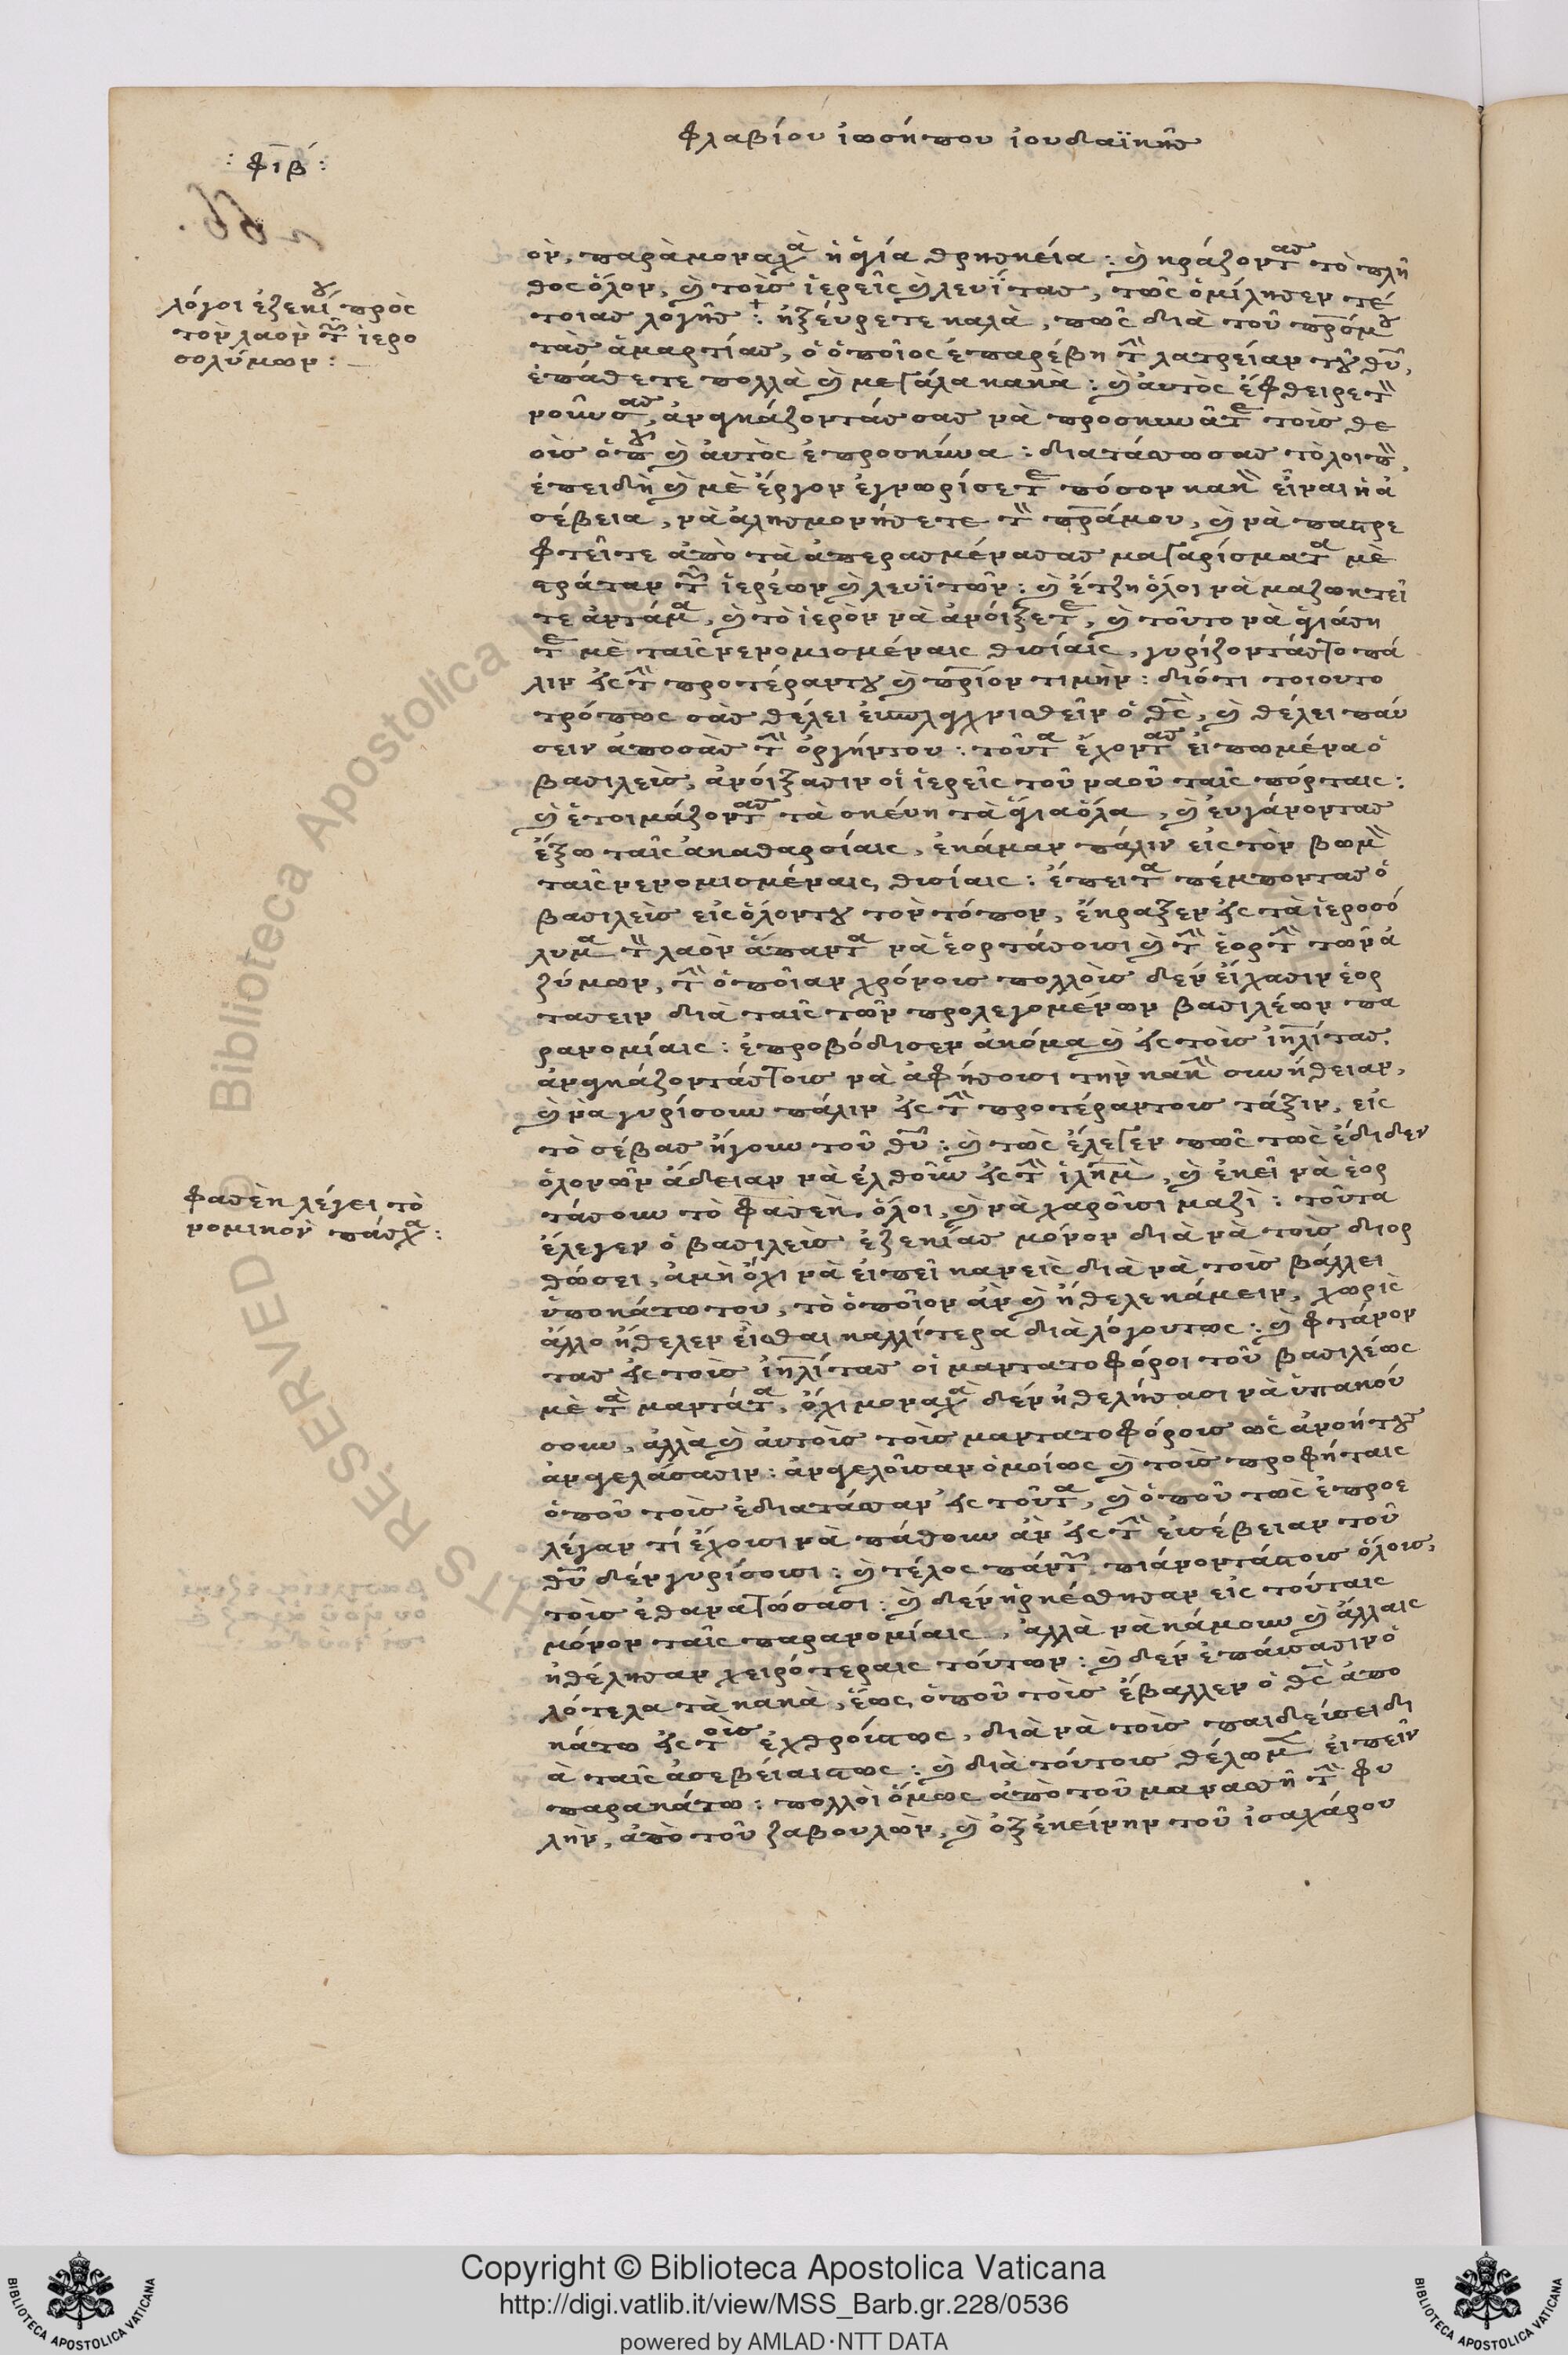 Φλαβίου ἰωσήπου ἰουδαϊκῆς
: φιβ :
λόγοι ἐζεκίου πρὸς
τὸν λαὸν τῶν ἱερο
σολύμων :
ὸν, παρὰ μοναχὰ ἡ ἁγία θρησκεία : ϗ κράζοντας τὸ πλῆ
θος ὅλον, ϗ τοὺς ἱερεῖς ϗ λευΐτας, τῶς ὁμίλησεν τέ
τοιας λογῆς : ἠξεύρετε καλὰ, πῶς διὰ τοῦ πρσ μου
τὰς ἁμαρτίας, ὁ ὁποῖος ἐπαρέβη τὴν λατρείαν τοῦ θυ,
ἐπάθετε πολλὰ ϗ μεγάλα κακὰ : ϗ αὐτὸς ἔφθειρε τὸν
νοῦν σας, ἀναγκάζοντάς σας νὰ προσκυνᾶτε τοὺς θε
οὺς ὁποῦ ϗ αὐτὸς ἐπροσκύνα : διατάσσω σας τὸ λοιπὸν,
ἐπειδὴ ϗ μὲ ἔργον ἐγνωρίσετε πόσον κακὸν εἶναι ἡ ἀ
σέβεια, νὰ ἀλησμονήσετε τὸν πρα μου, ϗ νὰ παστρε
φτεῖτε ἀπὸ τὰ ἀπερασμένα σας μαγαρίσματα μὲ
τῶν ἱερέων ϗ λευϊτῶν : ϗ ἔτζη ὅλοι νὰ μαζωκτεῖ
τε ἀντάμα, ϗ τὸ ἱερὸν νὰ ἀνοίξετε, ϗ τοῦτο νὰ ἁγιάση
τε μὲ ταῖς νενομισμέναις θυσίαις, γυρίζοντάς το πά
λιν εἰς τὴν προτέραν του ϗ πριον τιμὴν : διότι τοιουτο
τρόπως σᾶς θέλει εὐσπλαγχνισθεῖν ὁ θς, ϗ θέλει παύ
σειν ἀπὸ σᾶς τὴν ὀργήν του : τοῦτα ἔχοντας εἰπωμένα ὁ
βασιλεὺς, ἀνοίξασιν οἱ ἱερεῖς τοῦ ναοῦ ταῖς πόρταις :
ϗ ἑτοιμάζοντας τὰ σκεύη τὰ ἅγια ὅλα, ϗ εὐγάνοντας
ἔξω ταῖς ἀκαθαρσίαις, ἐκάμαν πάλιν εἰς τὸν βωμὸν
ταῖς νενομισμέναις θυσίαις : ἔπειτα πέμποντας ὁ
βασιλεὺς εἰς ὅλον του τὸν τόπον, ἔκραξεν εἰς τὰ ἱεροσό
λυμα τὸν λαὸν ἅπαντα νὰ ἑορτάσουσι ϗ τὴν ἑορτὴν τῶν ἀ
ζύμων, τὴν ὁποῖαν χρόνους πολλοὺς δὲν εἴχασιν ἑορ
τασειν διὰ ταῖς τῶν προλεγομένων βασιλέων πα
ρανομίαις : ἐπροβόδισεν ἀκόμα ϗ εἰς τοὺς ἰηλίτας,
ἀναγκάζοντάς τους νὰ ἀφήσουσι τὴν κακὴν συνήθειαν,
ϗ νὰ γυρίσουν πάλιν εἰς τὴν προτέραν τους τάξιν, εἰς
τὸ σέβας ἤγουν τοῦ θυ : ϗ τῶς ἔλεγεν πῶς τῶς ἔδιδεν
ὁλονῶν ἄδειαν νὰ ἐλθοῦν εἰς τὴν ἱλημ, ϗ ἐκεῖ νὰ ἑορ
τάσουν τὸ φασέκ ὅλοι, ϗ νὰ χαροῦσι μαζὶ : τοῦτα
φασὲκ λέγει τὸ
νομικὸν πάσχα :
ἔλεγεν ὁ βασιλεὺς ἐζεκίας μόνον διὰ νὰ τοὺς διορ
θώσει, ἀμὴ ὄχι νὰ εἰπεῖ κανεὶς διὰ νὰ τοὺς βάλλει
ὑποκάτω του, τὸ ὁποῖον ἂν ϗ ἤθελε κάμειν, χωρὶς
ἄλλο ἤθελεν εἶσθαι καλλίτερα διὰ λόγου τως : ϗ φτάνον
τας εἰς τοὺς ἰηλίτας οἱ μαντατοφόροι τοῦ βασιλέως
μὲ τὰ μαντάτα, ὄχι μοναχὰ δὲν ἠθελήσασι νὰ ὑπακού
σουν, ἀλλὰ ϗ αὐτοὺς τοὺς μαντατοφόρους ὡς ἀνοήτους
ἀνγελάσασιν : ἀνγελοῦσαν ὁμοίως ϗ τοὺς προφήταις
ὁποῦ τοὺς ἐδιατάσσαν εἰς τοῦτα, ϗ ὁποῦ τῶς ἐπροε
λέγαν τί ἔχουσι νὰ πάθουν ἂν εἰς τὴν εὐσέβειαν τοῦ
θυ δὲν γυρίσουσι : ϗ τέλος πάντων πιάνοντάς τους ὅλους,
τοὺς ἐθανατώσασι : ϗ δὲν ἠρκέσθησαν εἰς τούταις
μόνον ταῖς παρανομίαις, ἀλλὰ νὰ κάμουν ϗ ἄλλαις
ἠθέλησαν χειρότεραις τούτων : ϗ δὲν ἐπαύσασιν ὁ
λότελα τὰ κακὰ, ἕως ὁποῦ τοὺς ἔβαλλεν ὁ θς ἀπο
κάτω εἰς τοὺς ἐχθρούς τως, διὰ νὰ τοὺς παιδεύσει δι
ὰ ταῖς ἀσεβείαις τως : ϗ διὰ τούτους θέλωμεν εἰπεῖν
παρακάτω : πολλοὶ ὅμως ἀπὸ τοῦ μανασσῆ τὴν φυ
λὴν, ἀπὸ τοῦ ζαβουλὼν, ϗ ὀξ ἐκείνην τοῦ ἰσαχάρου
Copyright © Biblioteca Apostolica Vaticana
http://digi.vatlib.it/view/MSS_Barb.gr.228/0536
powered by AMLAD·NTT DATA